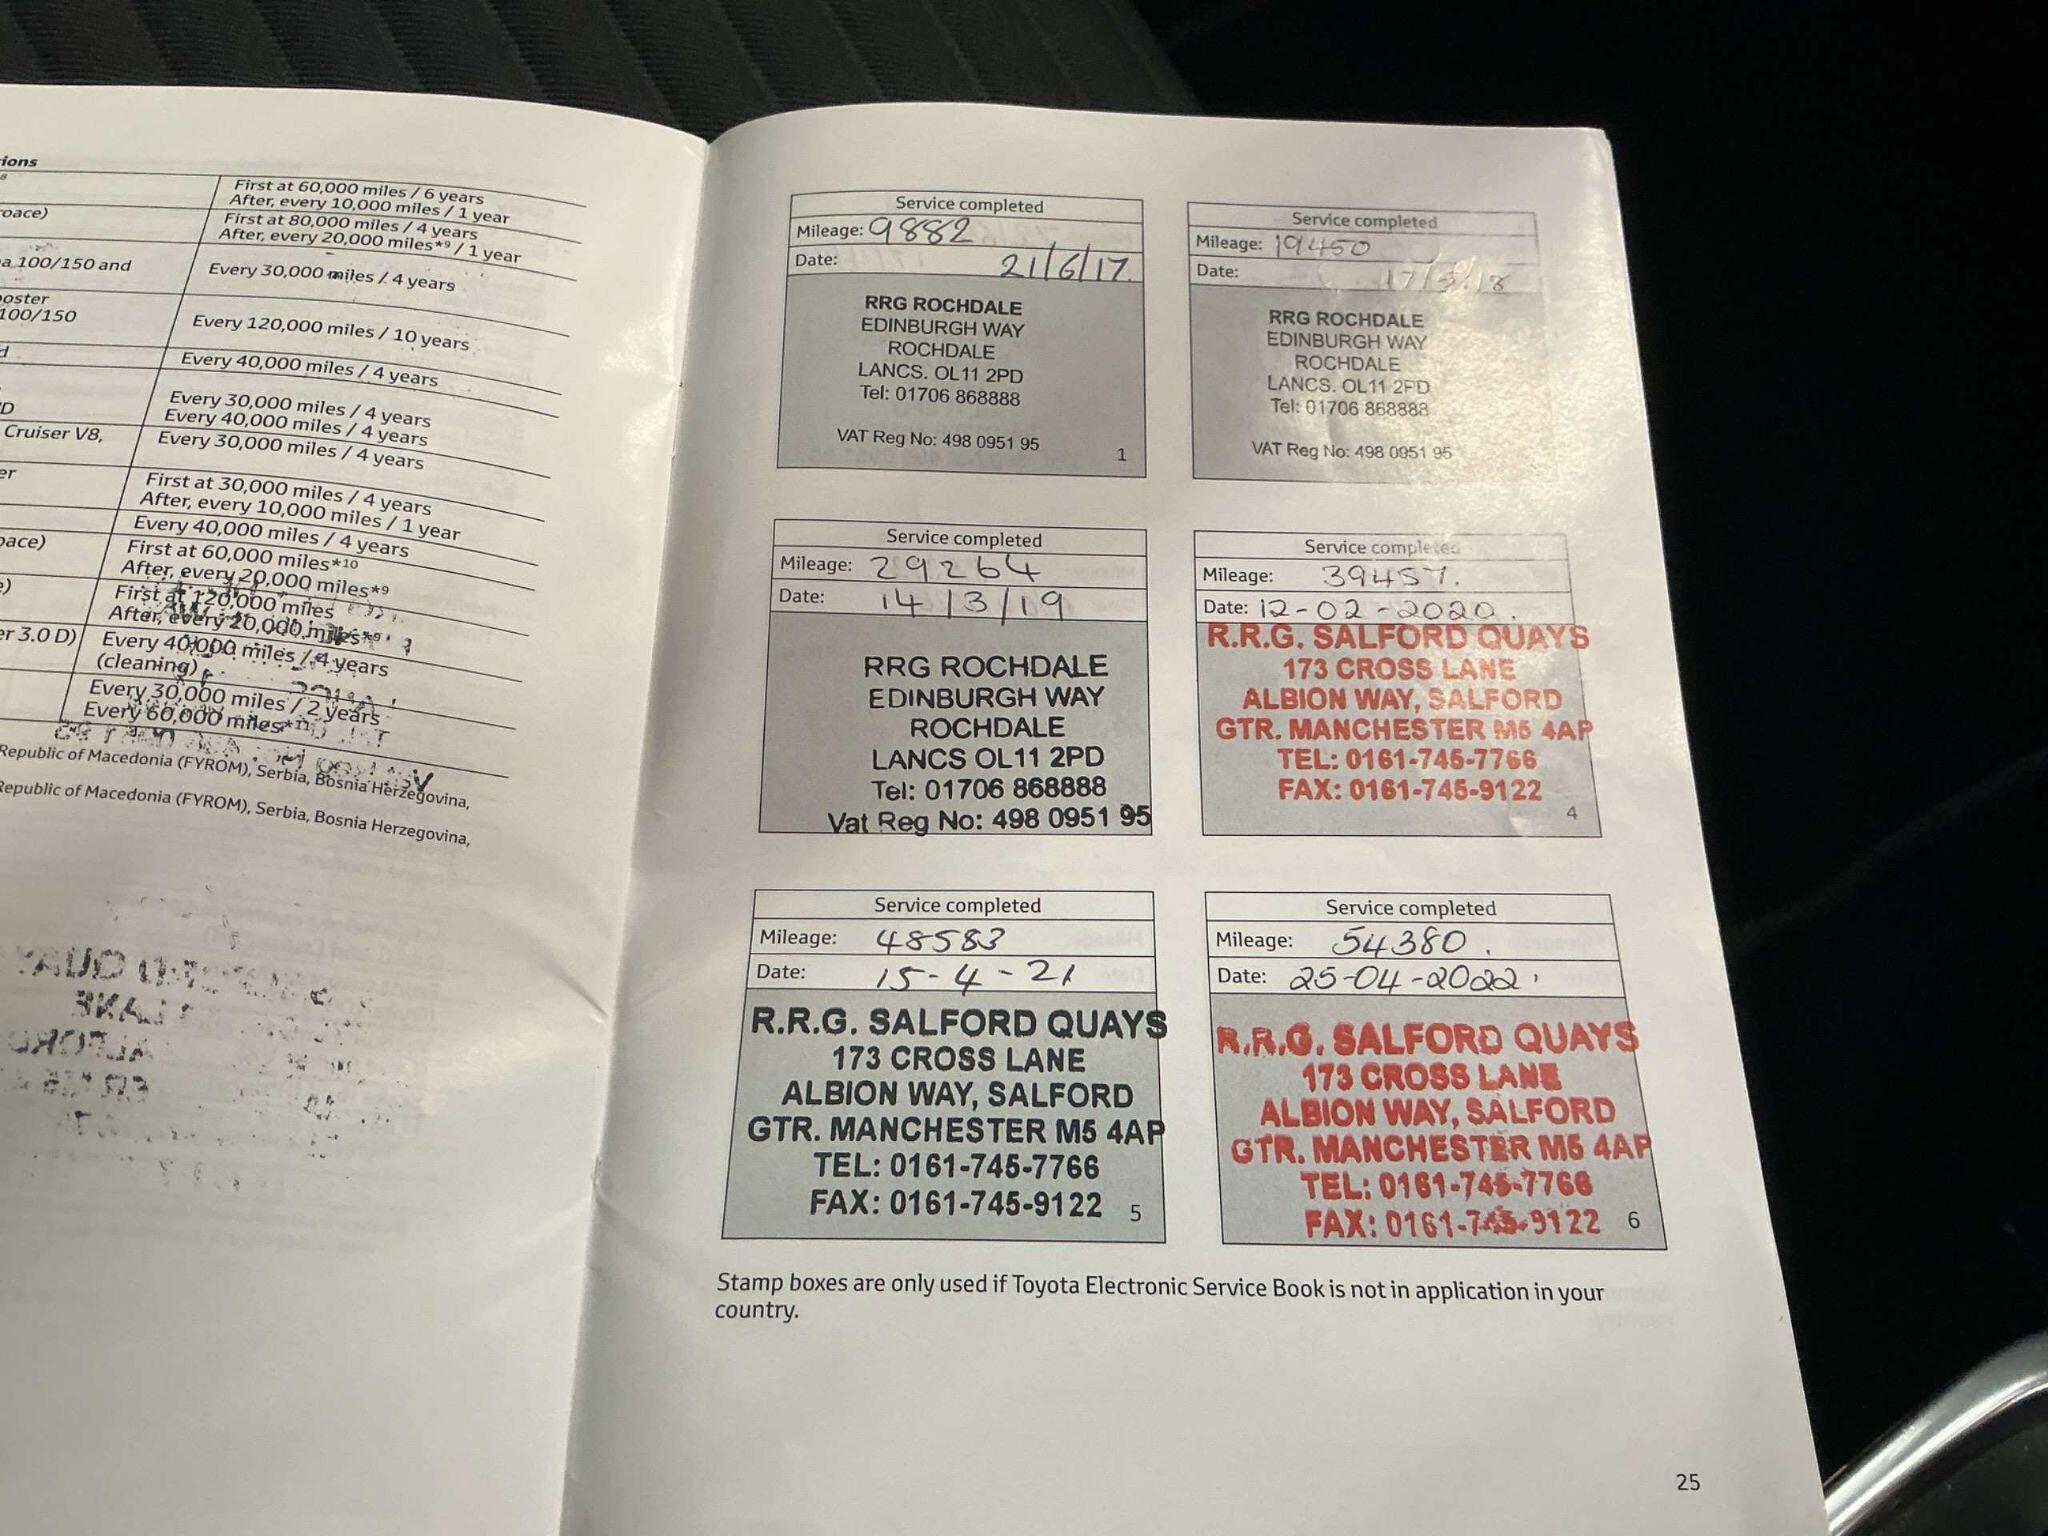 ions
First at 60,000 miles / 6 years
After, every 10,000 miles / 1 year
roace)
First at 80,000 miles / 4 years
After, every 20,000 miles*9 / 1 year
a 100/150 and
Every 30,000 miles / 4 years
ooster
100/150
Every 120,000 miles / 10 years
Every 40,000 miles / 4 years
Every 30,000 miles / 4 years
Every 40,000 miles / 4 years
Cruiser V8,
Every 30,000 miles / 4 years
er
First at 30,000 miles / 4 years
After, every 10,000 miles / 1 year
Every 40,000 miles / 4 years
pace)
First at 60,000 miles*10
After, every 20,000 miles*9
e)
First at 120,000 miles
After, every 20,000 miles*9
er 3.0 D)
Every 40,000 miles / 4 years
(cleaning)
Every 30,000 miles / 2 years
Every 60,000 miles*11
Republic of Macedonia (FYROM), Serbia, Bosnia Herzegovina,
Republic of Macedonia (FYROM), Serbia, Bosnia Herzegovina,
Service completed
Mileage: 9882
Date: 21/6/17
RRG ROCHDALE
EDINBURGH WAY
ROCHDALE
LANCS. OL11 2PD
Tel: 01706 868888
VAT Reg No: 498 0951 95
1
Service completed
Mileage: 19450
Date: 17/5/18
RRG ROCHDALE
EDINBURGH WAY
ROCHDALE
LANCS. OL11 2PD
Tel: 01706 868888
VAT Reg No: 498 0951 95
Service completed
Mileage: 29264
Date: 14/3/19
RRG ROCHDALE
EDINBURGH WAY
ROCHDALE
LANCS OL11 2PD
Tel: 01706 868888
Vat Reg No: 498 0951 95
Service completed
Mileage: 39457.
Date: 12-02-2020.
R.R.G. SALFORD QUAYS
173 CROSS LANE
ALBION WAY, SALFORD
GTR. MANCHESTER M5 4AP
TEL: 0161-745-7766
FAX: 0161-745-9122
4
Service completed
Mileage: 48583
Date: 15-4-21
R.R.G. SALFORD QUAYS
173 CROSS LANE
ALBION WAY, SALFORD
GTR. MANCHESTER M5 4AP
TEL: 0161-745-7766
FAX: 0161-745-9122
5
Service completed
Mileage: 54380.
Date: 25-04-2022.
R.R.G. SALFORD QUAYS
173 CROSS LANE
ALBION WAY, SALFORD
GTR. MANCHESTER M5 4AP
TEL: 0161-745-7766
FAX: 0161-745-9122
6
Stamp boxes are only used if Toyota Electronic Service Book is not in application in your
country.
25